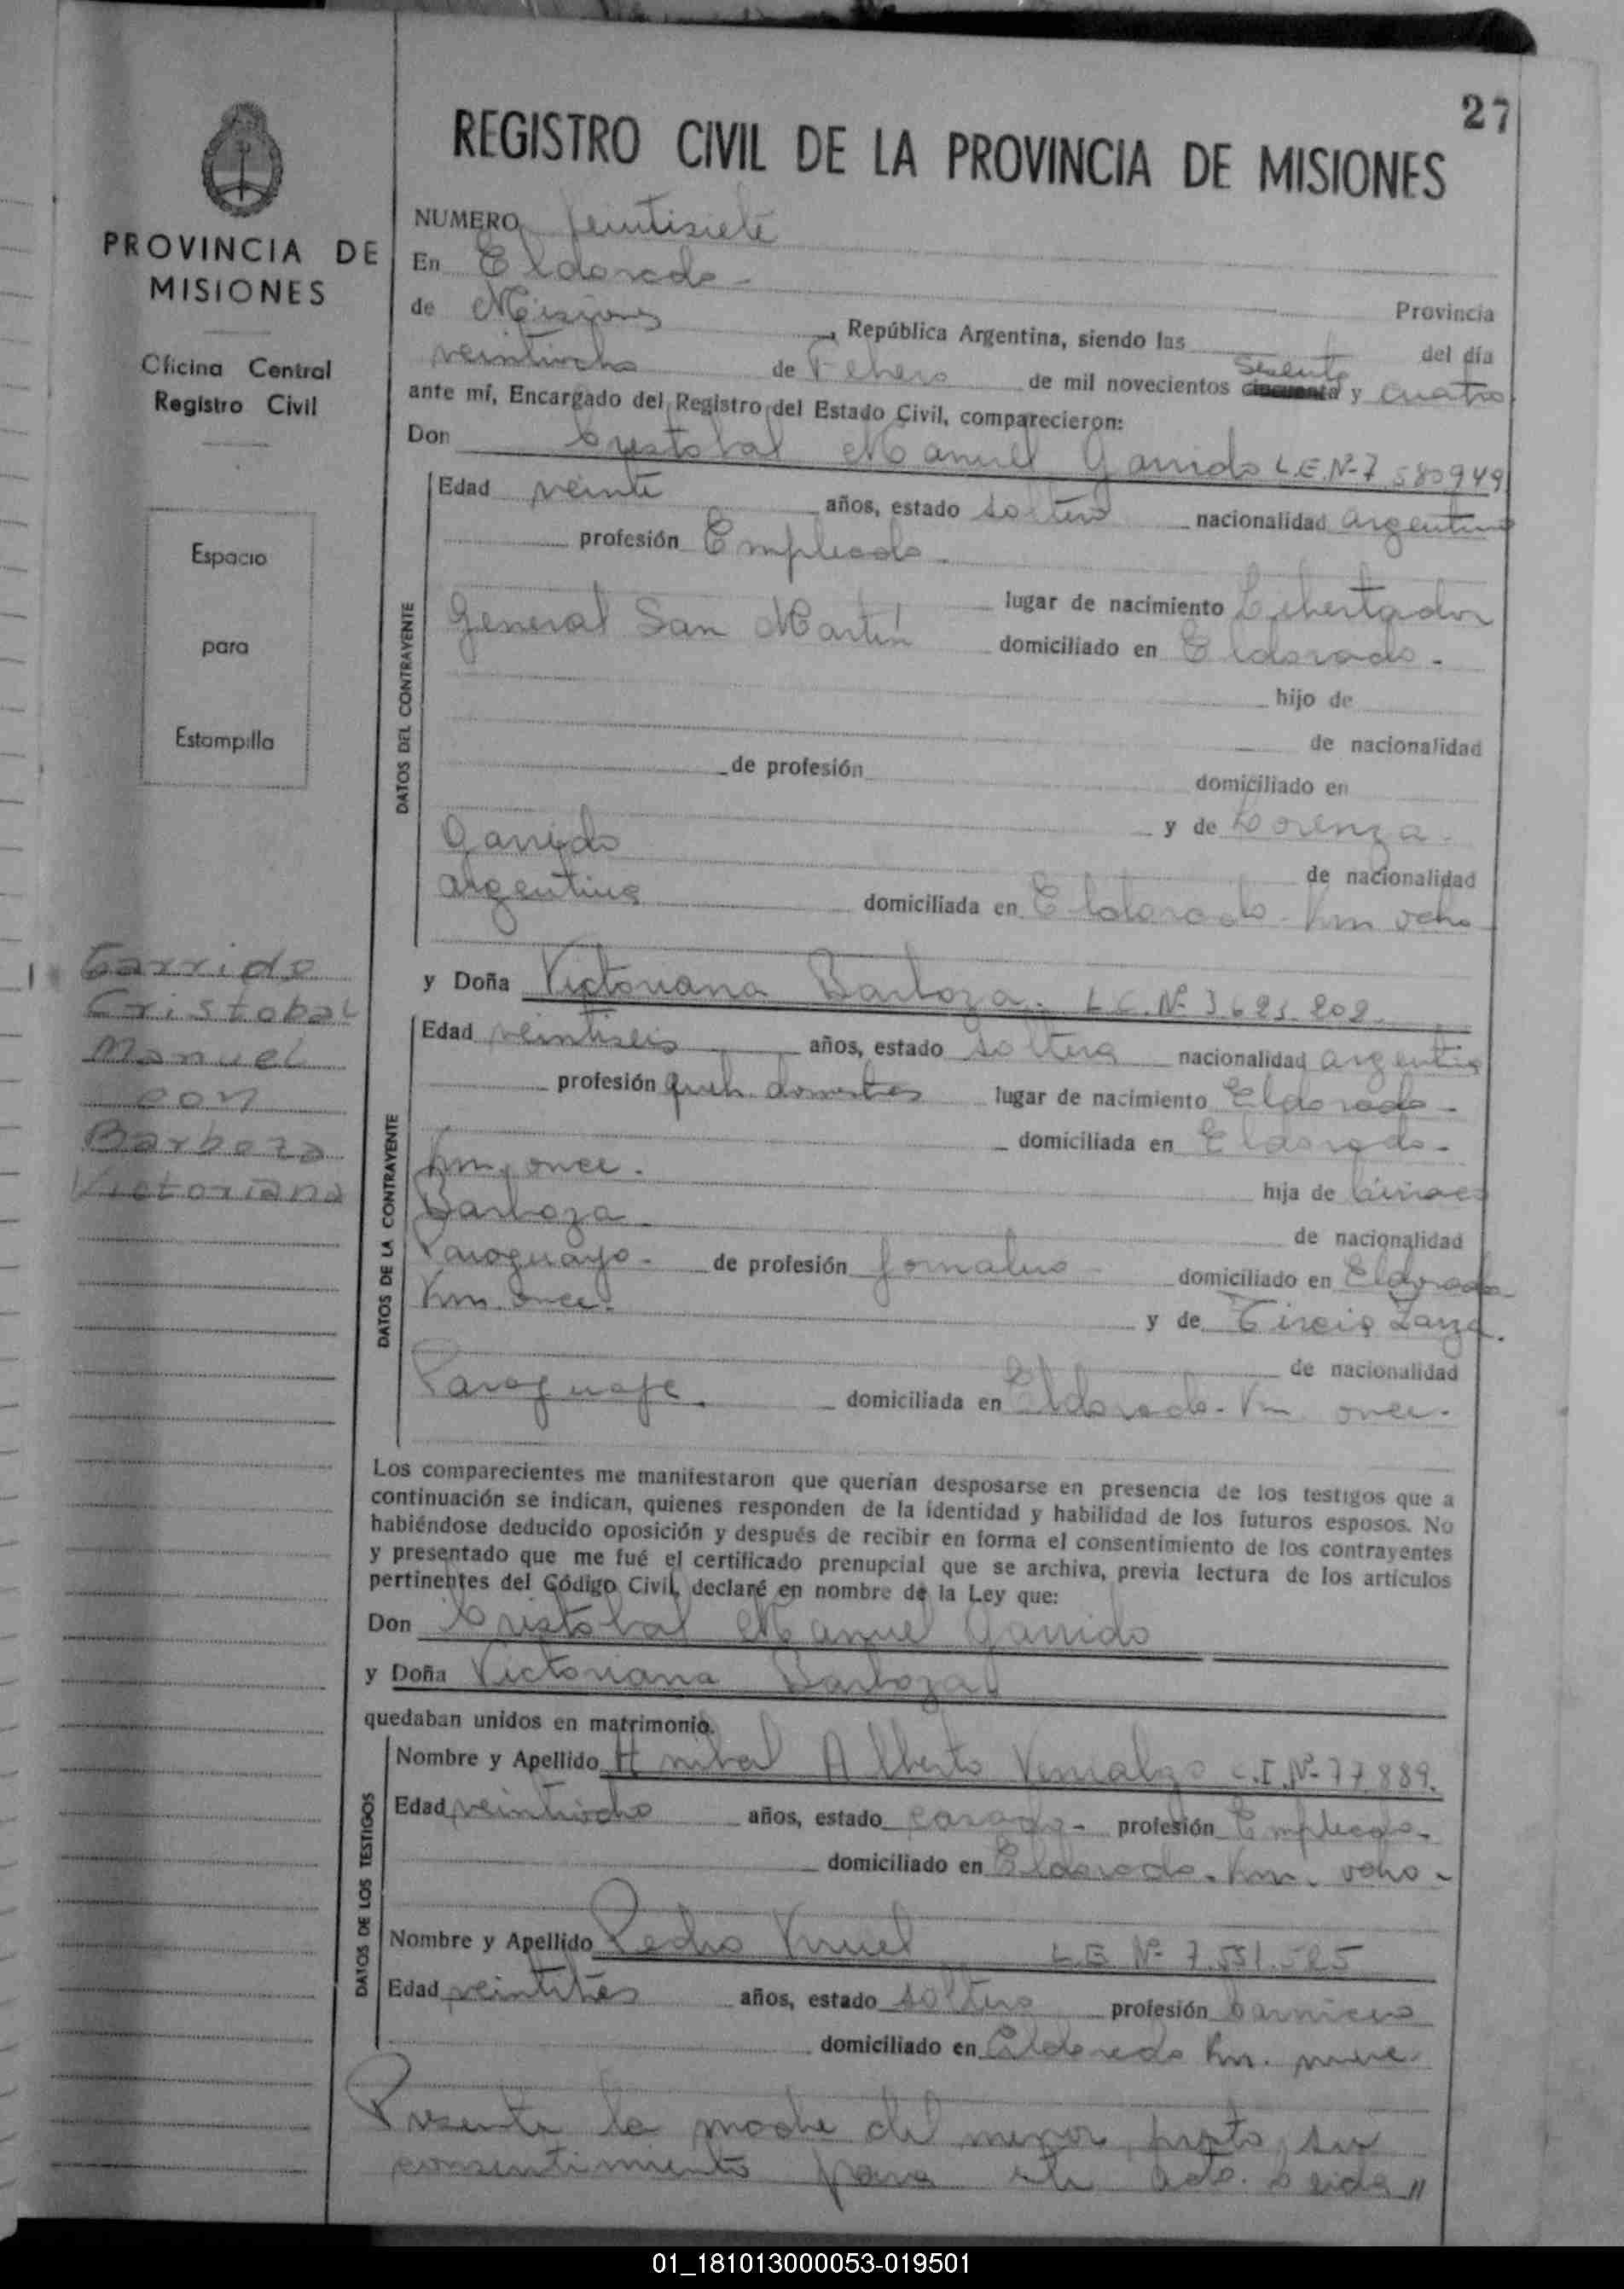 27
REGISTRO CIVIL DE LA PROVINCIA DE MISIONES
PROVINCIA DE
MISIONES
Oficina Central
Registro Civil
Espacio
para
Estampilla
Garrido
Cristobal
Manuel
con
Barboza
Victoriana
NUMERO Veintisiete
En Eldorado - Provincia
de Misiones, República Argentina, siendo las del día
veintiocho de Febrero de mil novecientos sesenta y cuatro
ante mí, Encargado del Registro del Estado Civil, comparecieron:
Don Cristobal Manuel Garrido L.E.Nº 7.580949
DATOS DEL CONTRAYENTE
Edad veinte años, estado soltero nacionalidad argentino
profesión Empleado
lugar de nacimiento Libertador
General San Martín domiciliado en Eldorado.
hijo de
de nacionalidad
de profesión domiciliado en
y de Lorenza
Garrido de nacionalidad
argentina domiciliada en Eldorado - Km ocho
y Doña Victoriana Barboza. L.C.Nº 3.621.202
DATOS DE LA CONTRAYENTE
Edad veintiseis años, estado soltera nacionalidad argentina
profesión queh. domesticos lugar de nacimiento Eldorado -
domiciliada en Eldorado -
Km. once. hija de
Barboza de nacionalidad
Paraguayo - de profesión Jornalero domiciliado en Eldorado
Km. once. y de
de nacionalidad
Paraguaya. domiciliada en Eldorado - Km once.
Los comparecientes me manifestaron que querían desposarse en presencia de los testigos que a
continuación se indican, quienes responden de la identidad y habilidad de los futuros esposos. No
habiéndose deducido oposición y después de recibir en forma el consentimiento de los contrayentes
y presentado que me fué el certificado prenupcial que se archiva, previa lectura de los artículos
pertinentes del Código Civil, declaré en nombre de la Ley que:
Don Cristobal Manuel Garrido
y Doña Victoriana Barboza
quedaban unidos en matrimonio.
DATOS DE LOS TESTIGOS
Nombre y Apellido Anibal Alberto C.I.Nº 77889.
Edad veintiocho años, estado casado - profesión Empleado -
domiciliado en Eldorado - Km. ocho -
Nombre y Apellido Pedro L.E Nº 7.551.525
Edad veintitrés años, estado soltero profesión carnicero
domiciliado en Eldorado Km. nueve
Presente la madre del menor, presto su
consentimiento para este acto. Leida "
01_181013000053-019501